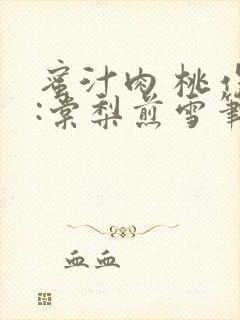 蜜汁肉桃作
:棠梨煎雪笔
血血